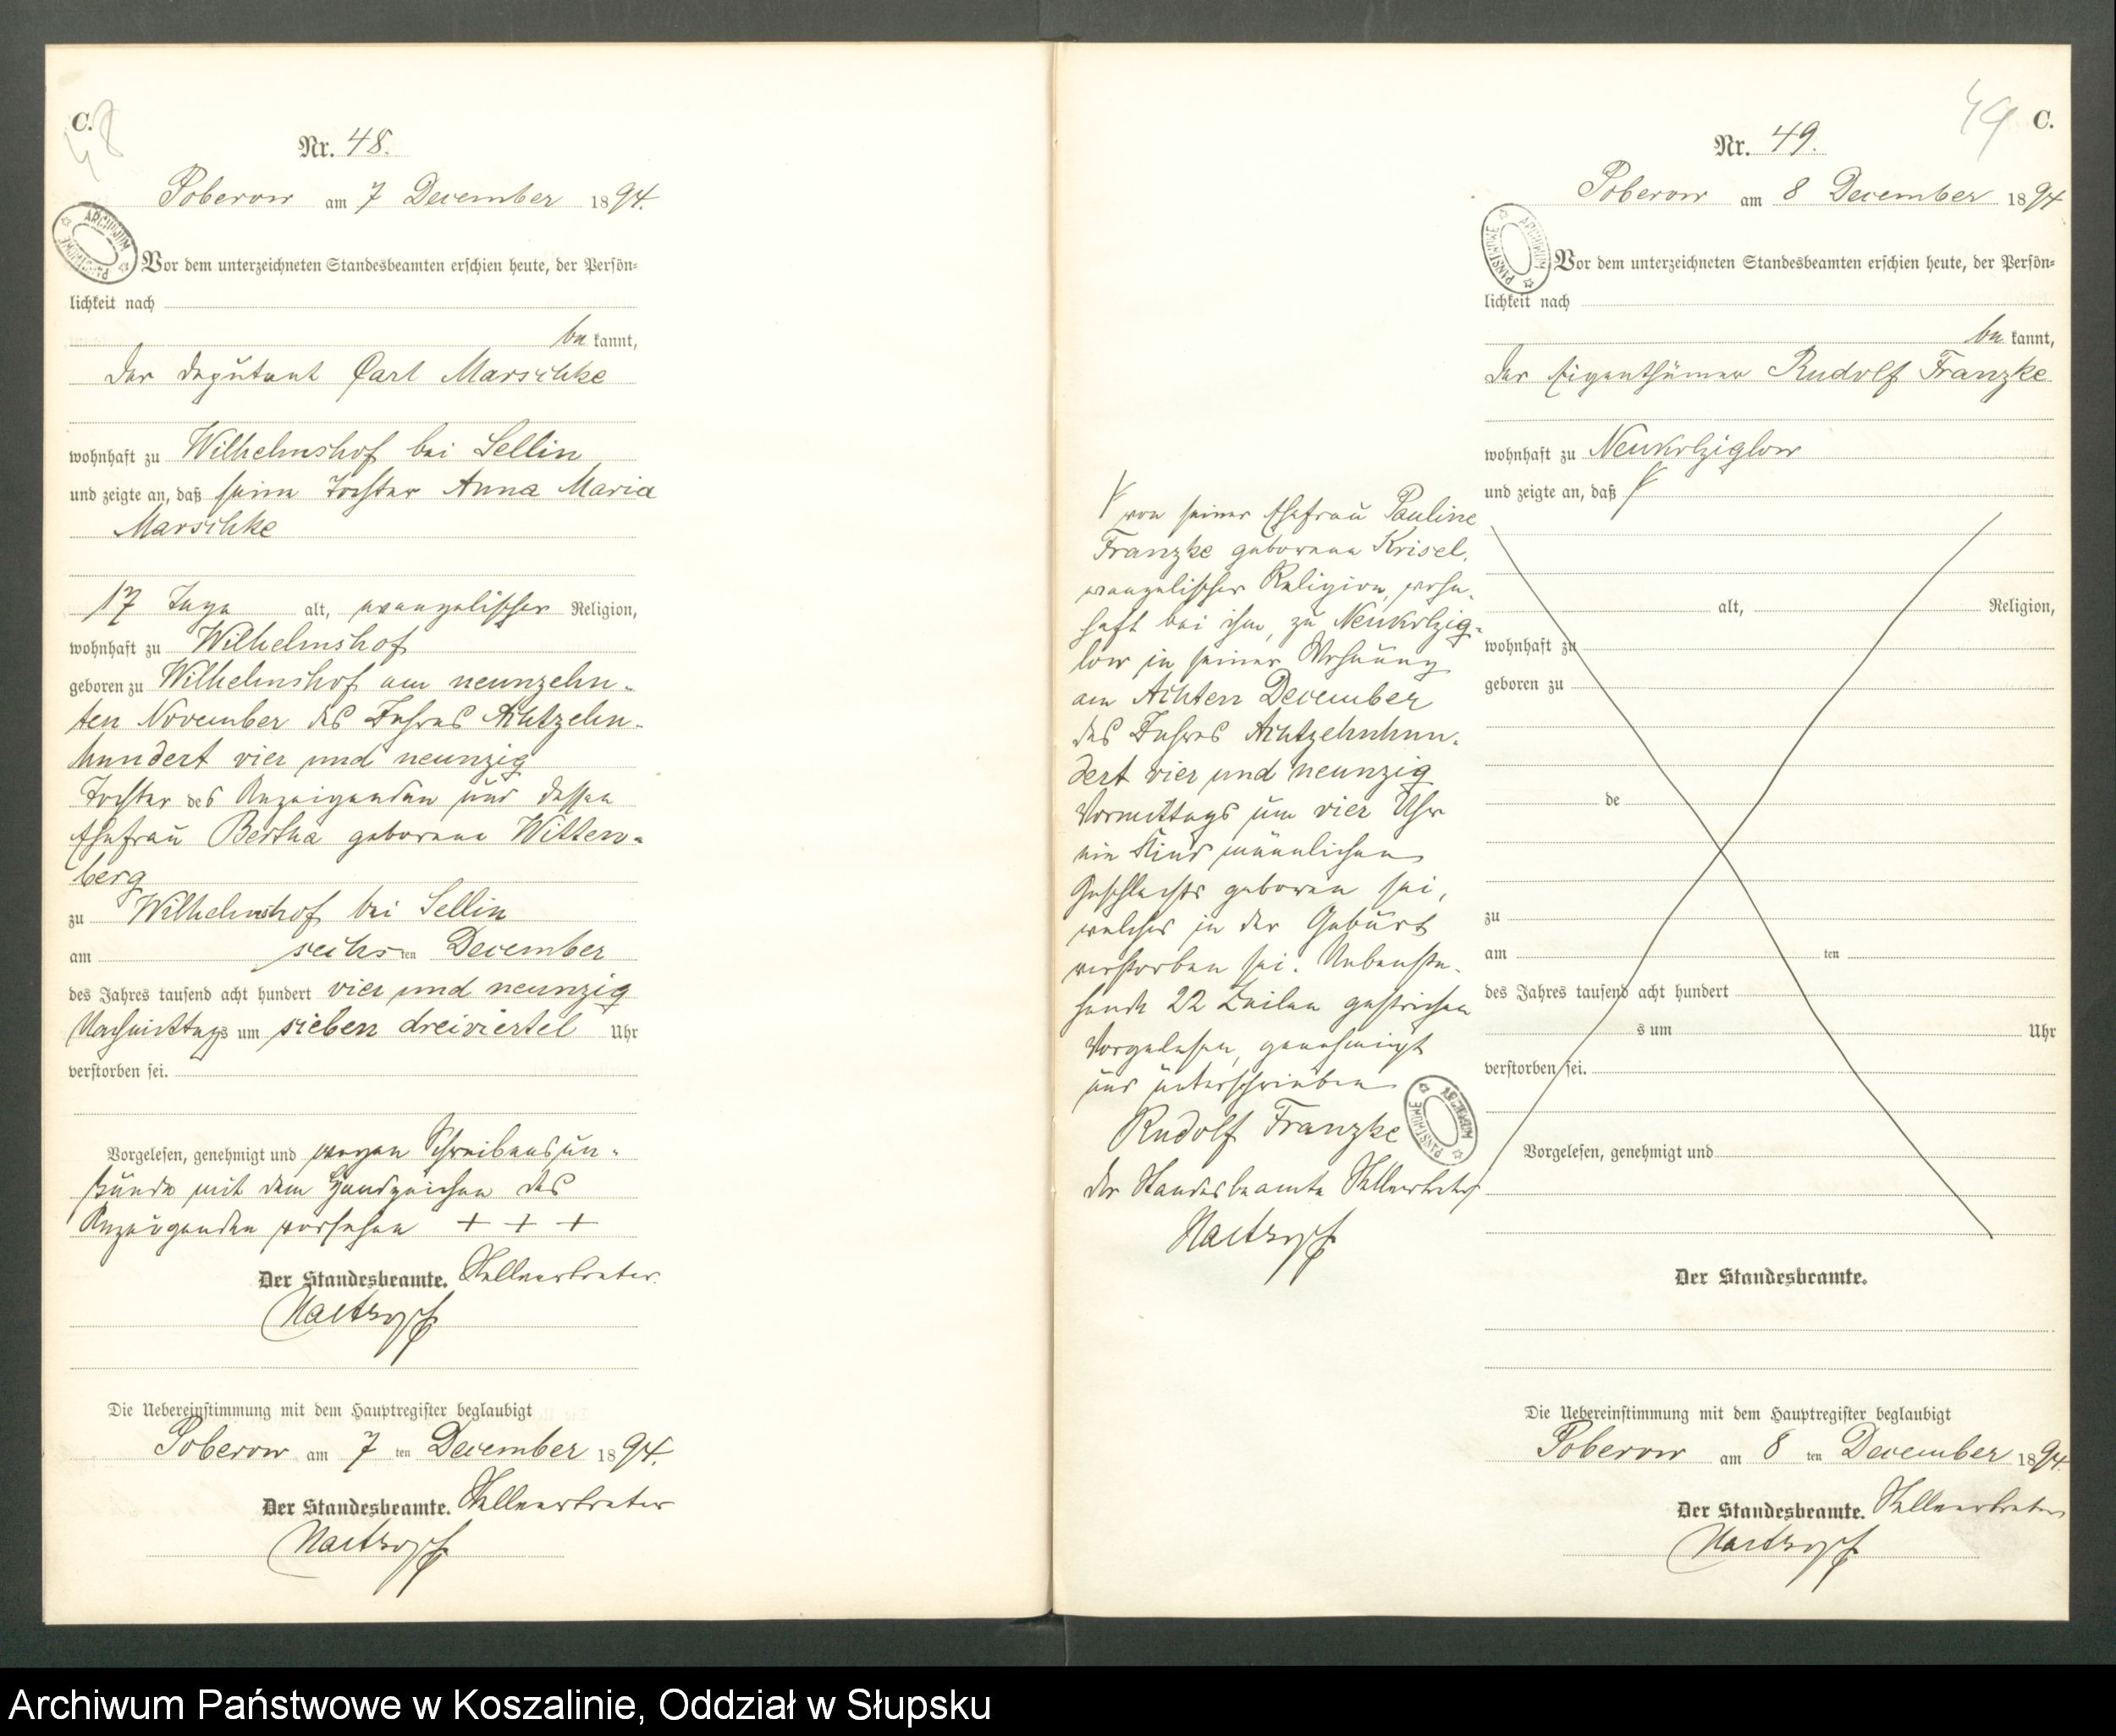 C.
48
Nr. 48.
Poberow am 7 December 1894.
ARCHIWUM PAŃSTWOWE
Vor dem unterzeichneten Standesbeamten erschien heute, der Persön-
lichkeit nach
be kannt,
der Deputant Carl Marschke
wohnhaft zu Wilhelmshof bei Sellin
und zeigte an, daß seine Tochter Anna Maria
Marschke
17 Tage alt, evangelischer Religion,
wohnhaft zu Wilhelmshof
geboren zu Wilhelmshof am neunzehn-
ten November des Jahres Achtzehn-
hundert vier und neunzig
Tochter des Anzeigenden und dessen
Ehefrau Bertha geborene Witten-
berg
zu Wilhelmshof bei Sellin
am sechs ten December
des Jahres tausend acht hundert vier und neunzig
Nachmittags um sieben dreiviertel Uhr
verstorben sei.
Vorgelesen, genehmigt und wegen Schreibensun-
kunde mit dem Handzeichen des
Anzeigenden versehen + + +
Der Standesbeamte. Stellvertreter.
Die Uebereinstimmung mit dem Hauptregister beglaubigt
Poberow am 7 ten December 1894.
Der Standesbeamte. Stellvertreter
49 C.
Nr. 49.
Poberow am 8 December 1894
ARCHIWUM PAŃSTWOWE
Vor dem unterzeichneten Standesbeamten erschien heute, der Persön-
lichkeit nach
be kannt,
der Eigenthümer Rudolf Franzke
wohnhaft zu Neukolziglow
und zeigte an, daß
von seiner Ehefrau Pauline
Franzke geborene Krisel,
evangelischer Religion, wohn-
haft bei ihm, zu Neukolzig-
low in seiner Wohnung
am Achten December
des Jahres Achtzehnhun-
dert vier und neunzig
Vormittags um vier Uhr
ein Kind männlichen
Geschlechts geboren sei,
welches in der Geburt
verstorben sei. Nebenste-
hende 22 Zeilen gestrichen
Vorgelesen, genehmigt
und unterschrieben
Rudolf Franzke
ARCHIWUM PAŃSTWOWE
der Standesbeamte Stellvertreter
alt, Religion,
wohnhaft zu
geboren zu
de
zu
am ten
des Jahres tausend acht hundert
s um Uhr
verstorben sei.
Vorgelesen, genehmigt und
Der Standesbeamte.
Die Uebereinstimmung mit dem Hauptregister beglaubigt
Poberow am 8 ten December 1894.
Der Standesbeamte. Stellvertreter
Archiwum Państwowe w Koszalinie, Oddział w Słupsku